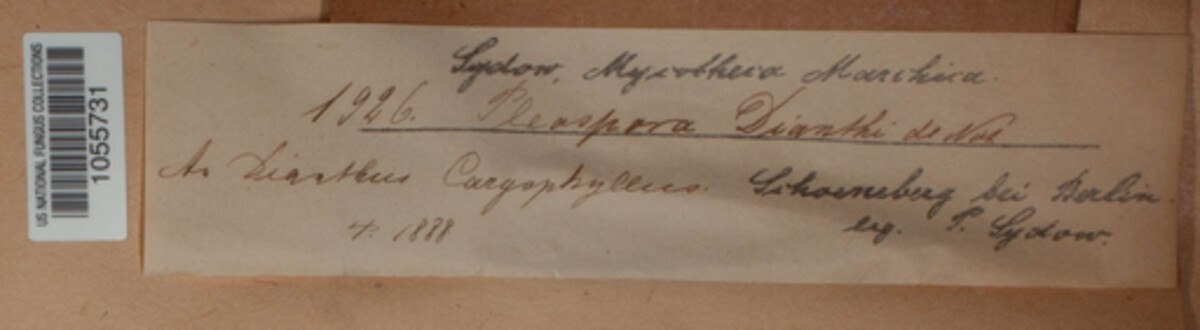 US NATIONAL FUNGUS COLLECTIONS
1055731
Sydow, Mycotheca Marchica.
1926. Pleospora Dianthi de Not
An Dianthus Caryophyllus. Schoeneberg bei Berlin.
4. 1888 leg. P. Sydow.